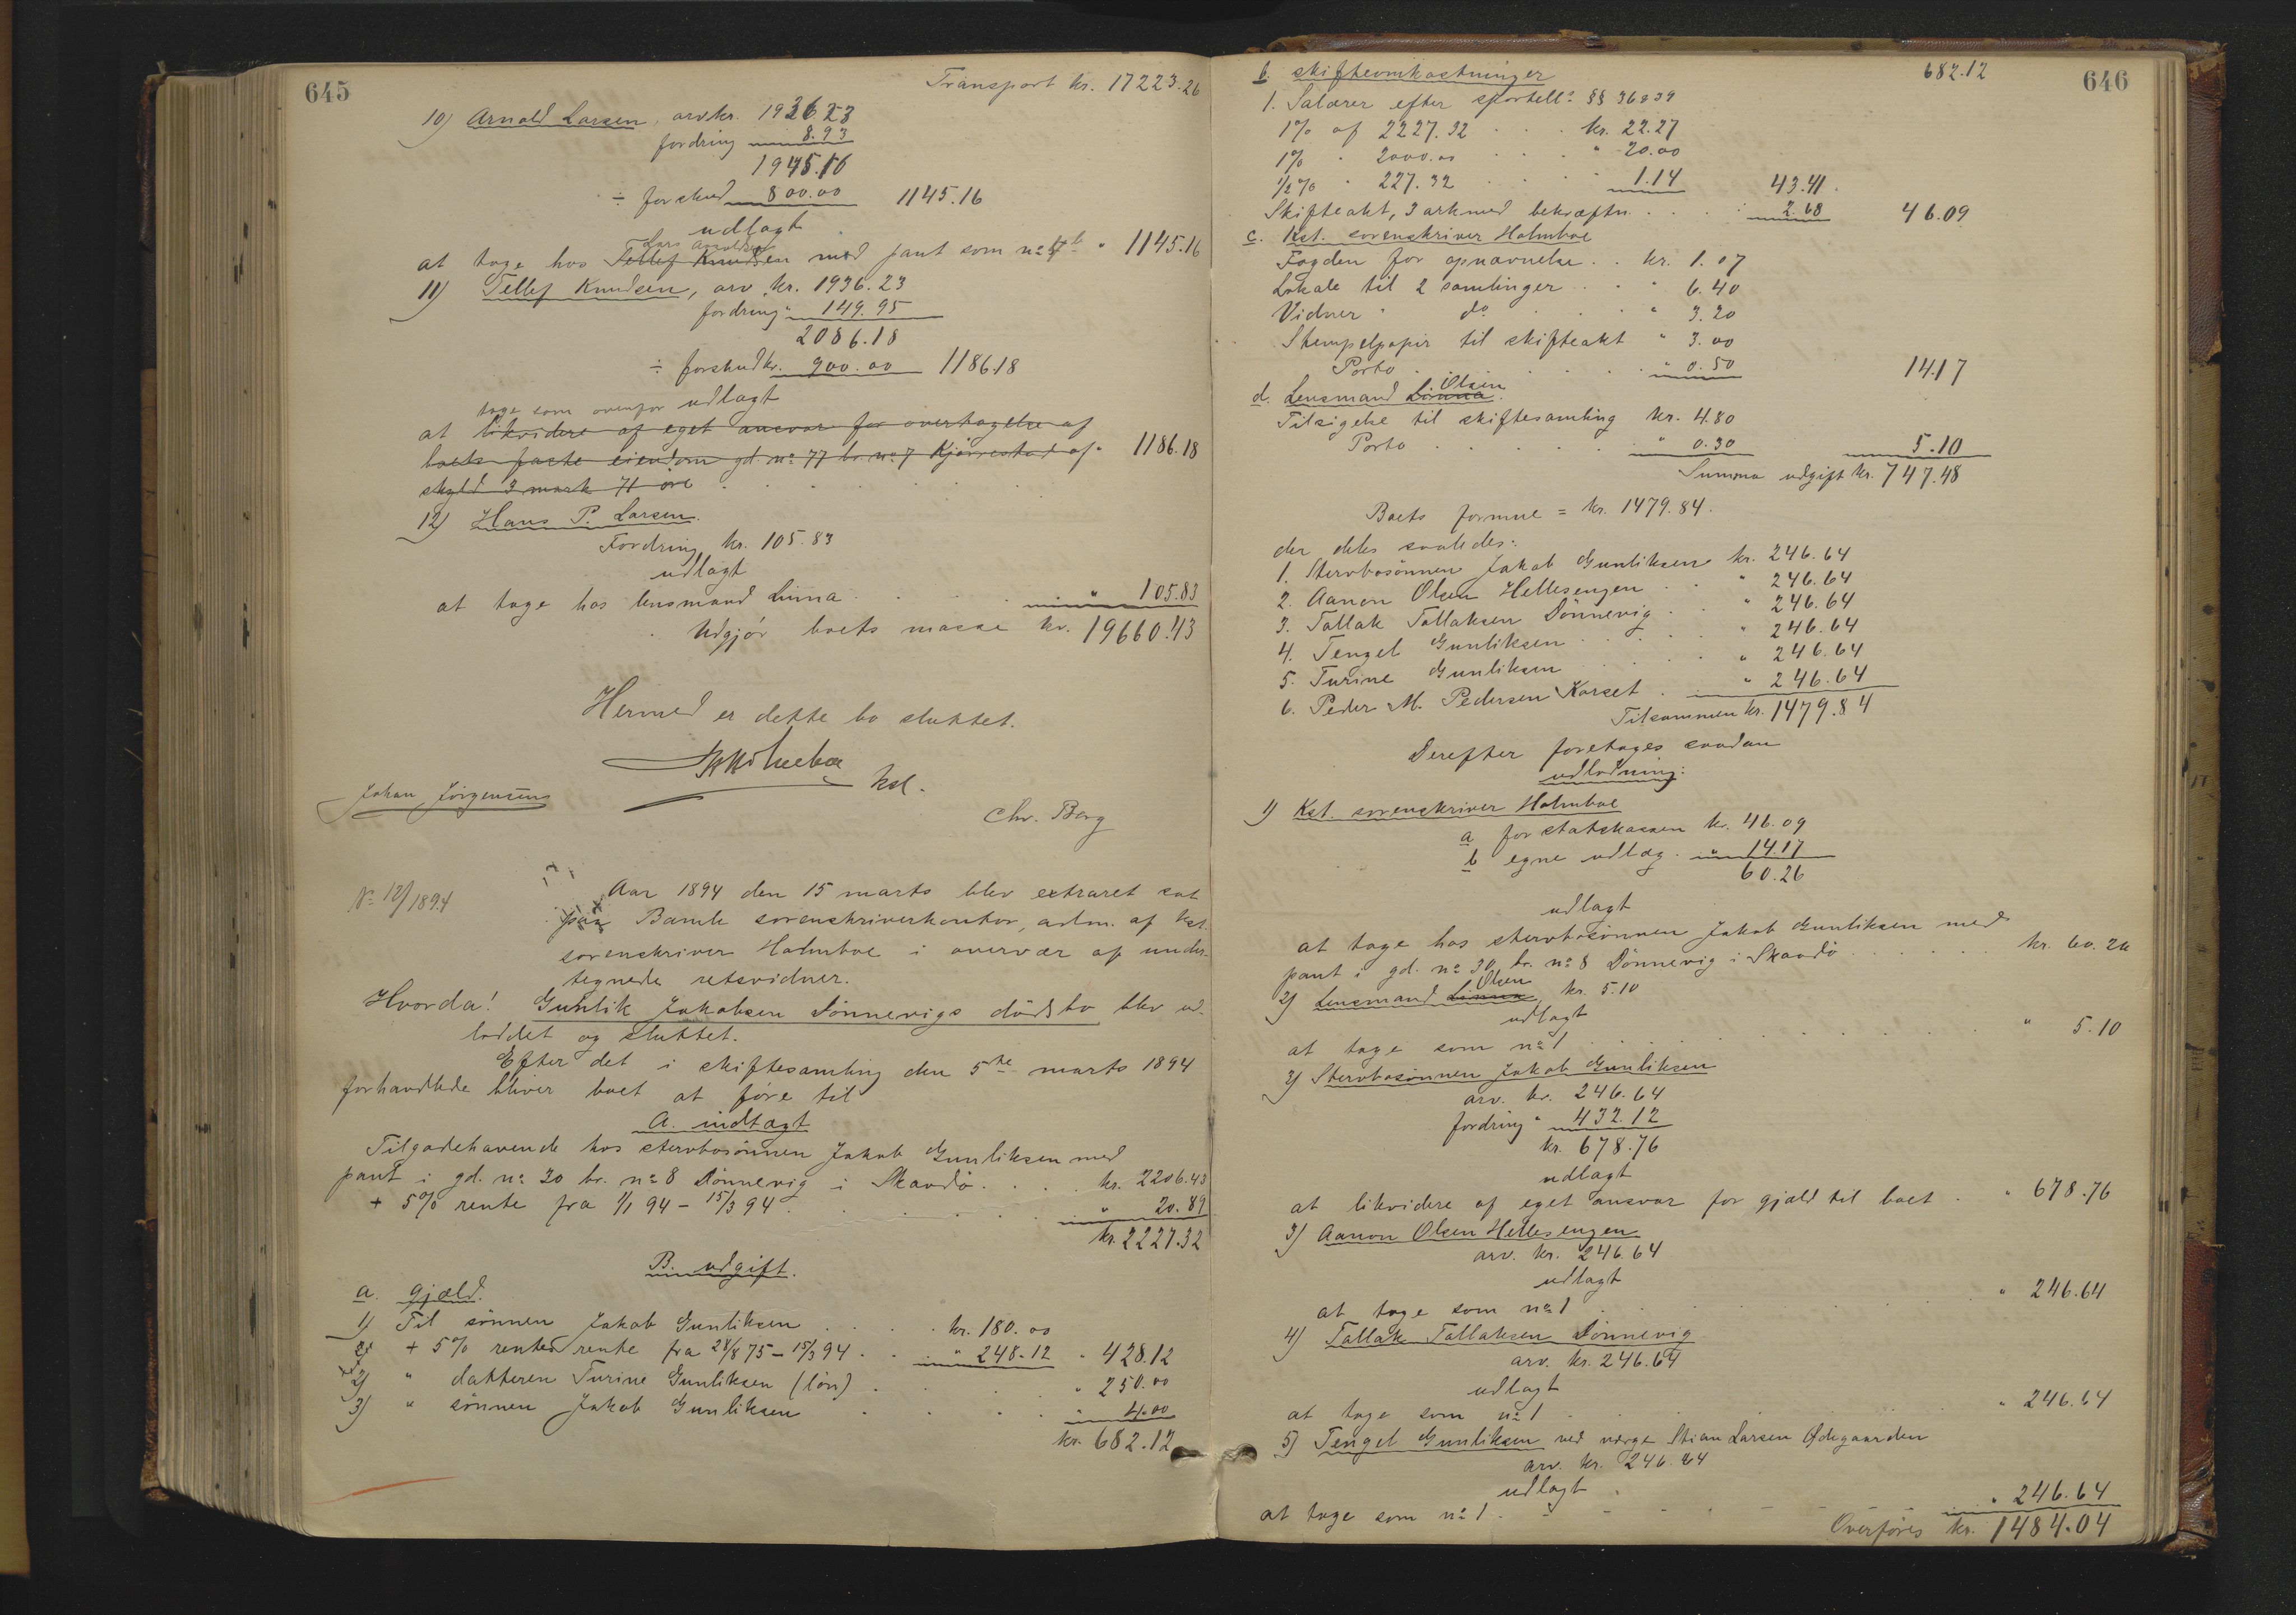 645
Transport kr. 17223.26
10) Arnold Larsen, arv kr. 1936.23
fordring 8.93
1945.16
÷ forskud 800.00 1145.16
udlagt
Lars Arnoldsen
at tage hos Tellef Knudsen med pant som no 4 b " 1145.16
11) Tellef Knudsen, arv kr. 1936.23
fordring " 149.95
2086.18
÷ forskud kr. 900.00 1186.18
tage som ovenfor udlagt
at likvidere af eget ansvar for overtagelse af
boets faste eiendom gd. no 77 br. no 7 Kjørrestad af " 1186.18
skyld 3 mark 71 øre
12) Hans P. Larsen.
Fordring kr. 105.83
udlagt
at tage hos lensmand Linna " 105.83
Udgjør boets masse kr. 19660.43
Hermed er dette bo sluttet.
Holmboe
kst.
Johan Jörgensens
Chr. Berg
No 12/1894
Aar 1894 den 15 marts blev extraret sat
paa Bamle sorenskriverkontor, adm. af kst.
sorenskriver Holmboe i overvær af under-
tegnede retsvidner.
Hvorda! Gunlik Jakobsen Dönnevigs dödsbo blev ud-
loddet og sluttet.
Efter det i skiftesamling den 5te marts 1894
forhandlede bliver boet at före til
A. indtægt
Tilgodehavende hos stervbosönnen Jakob Gunliksen med
pant i gd. no 30 br. no 8 Dönnevig i Skaadö kr. 2206.43
+ 5% rente fra 1/1 94 - 15/3 94 " 20.89
kr. 2227.32
B. udgift.
a. gjæld.
1) Til sönnen Jakob Gunliksen kr. 180.00
2) + 5% rentes rente fra 28/8 75 - 15/3 94 " 248.12 " 428.12
2) " datteren Turine Gunliksen (lön) " 250.00
3) " sönnen Jakob Gunliksen " 4.00
kr. 682.12
646
682.12
b. skifteomkostninger
1. Salærer efter sportell: §§ 36 & 39
1% af 2227.32 kr. 22.27
1% " 2000.00 " 20.00
1/2% " 227.32 " 1.14 43.41
Skifteakt, 3 ark med bekræftn. " 2.68 46.09
c. Kst. sorenskriver Holmboe
Fogden for opnævnelse kr. 1.07
Lokale til 2 samlinger " 6.40
Vidner " do " 3.20
Stempelpapir til skifteakt " 3.00
Porto " 0.50 14.17
Olsen
d. Lensmand Linna.
Tilsigelse til skiftesamling kr. 4.80
Porto " 0.30 5.10
Summa udgift kr. 747.48
Boets formue = kr. 1479.84.
der deles saaledes:
1. Stervbosönnen Jakob Gunliksen kr. 246.64
2. Aanon Olsen Hellesengen " 246.64
3. Tallak Tallaksen Dönnevig " 246.64
4. Tengel Gunliksen " 246.64
5. Turine Gunliksen " 246.64
6. Peder M. Pedersen Korset " 246.64
Tilsammen kr. 1479.84
Derefter foretages saadan
udlodning:
1) Kst. sorenskriver Holmboe
a for statskassen kr. 46.09
b egne udlæg " 14.17
60.26
udlagt
at tage hos stervbosönnen Jakob Gunliksen med
pant i gd. no 30 br. no 8 Dönnevig i Skaadö kr. 60.26
Olsen
2) Lensmand Linna kr. 5.10
udlagt
at tage som no 1 " 5.10
3) Stervbosönnen Jakob Gunliksen
arv. kr. 246.64
fordring " 432.12
kr. 678.76
udlagt
at likvidere af eget ansvar for gjæld til boet " 678.76
3) Aanon Olsen Hellesengen
arv. kr. 246.64
udlagt
at tage som no 1 " 246.64
4) Tallak Tallaksen Dönnevig
arv. kr. 246.64
udlagt
at tage som no 1 " 246.64
5) Tengel Gunliksen ved værge Stian Larsen Ødegaarden
arv. kr. 246.64
udlagt
at tage som no 1 " 246.64
Overføres kr. 1484.04